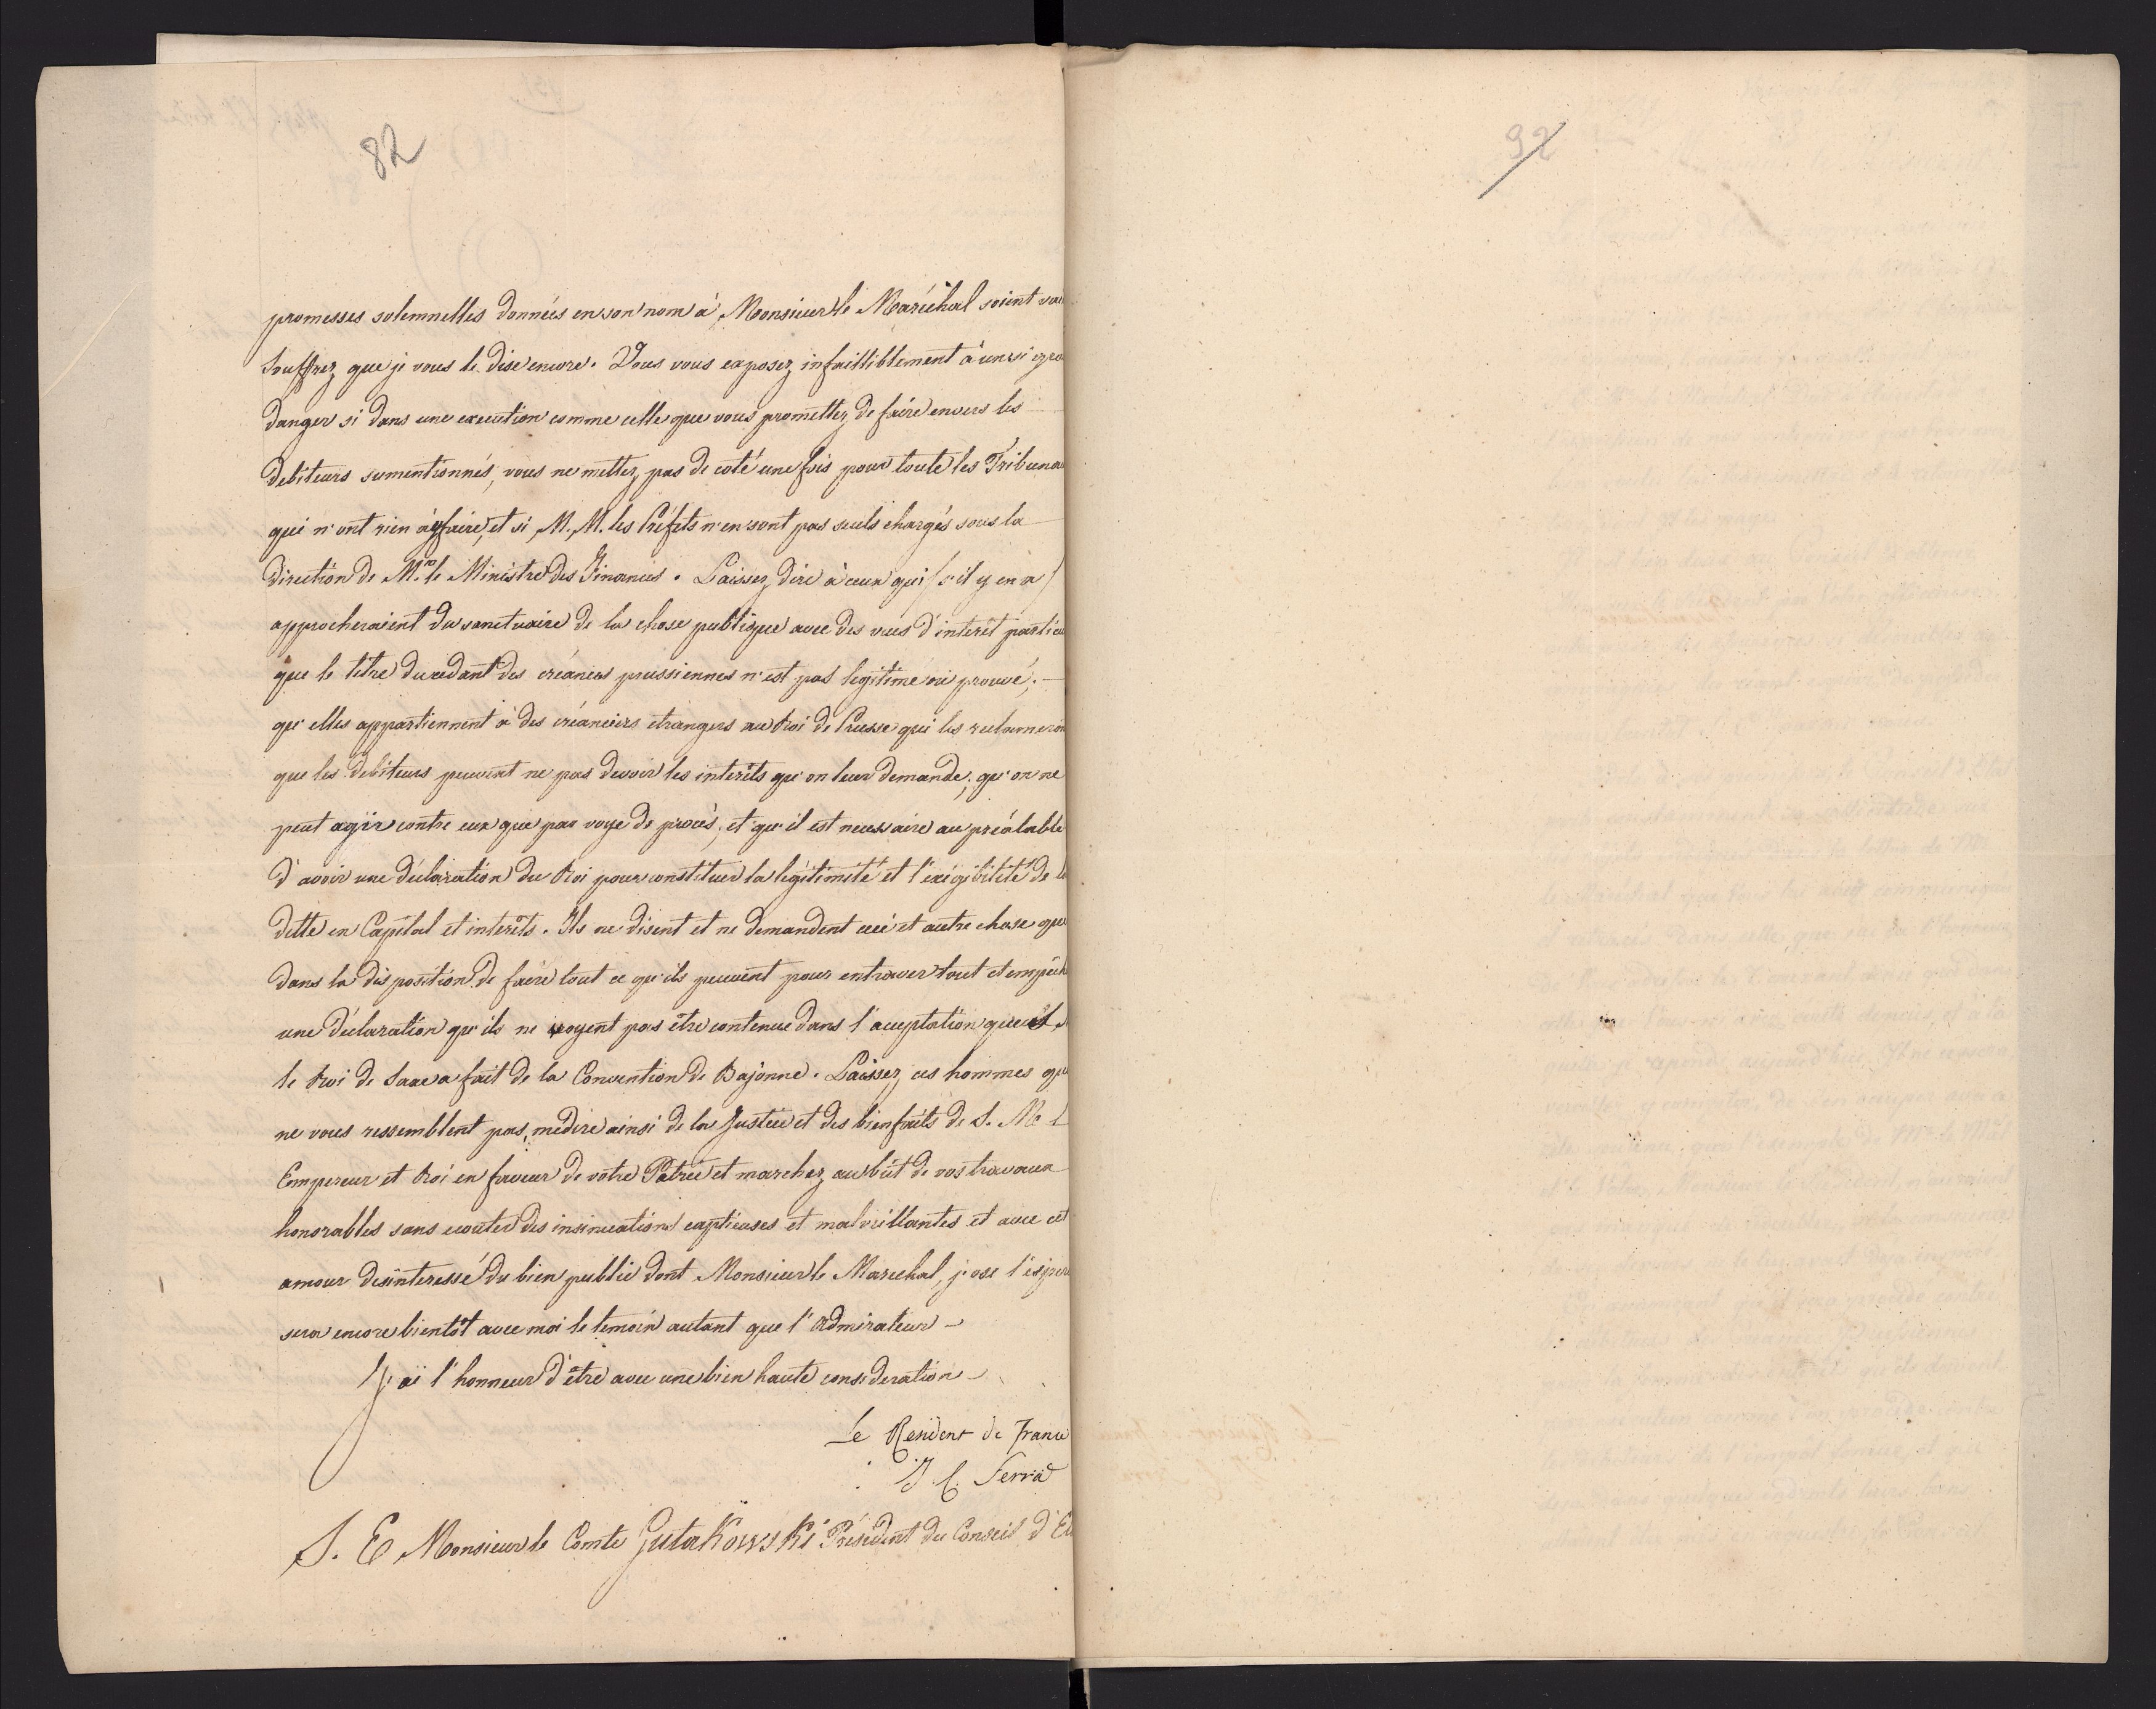 82
92
promesses solemnelles données en son nom à Monsieur le Maréchal soient
Souffrez que je vous le dise encore. Vous vous exposez infailliblement à un si
danger si dans une execution comme celle que vous promettez de faire envers les
debiteurs sumentionnés, vous ne mettez pas de coté une fois pour toute les Tribuna
qui n'ont rien à y faire, et si M. M. les Préfets n'en sont pas seuls chargés sous la
direction de M.r le Ministre des Finances. Laissez dire à ceux qui / s'il y en a /
approcheraient du sanctuaire de la chose publique avec des vues d'interêt particu
que le titre du cedant des créances prussiennes n'est pas legitime ou prouvé;
qu'elles appartiennent à des créanciers etrangers au Roi de Prusse qui les reclameron
que les debiteurs peuvent ne pas devoir les interêts qu'on leur demande; qu'on ne
peut agir contre eux que par voye de procès; et qu'il est necessaire au préalable
d'avoir une déclaration du Roi pour constituer la légitimité et l'éxigibilité de l
dette en Capital et interêts. Ils ne disent et ne demandent ceci et autre chose que
dans la disposition de faire tout ce qu'ils peuvent pour entraver tout et empêch
une déclaration qu'ils ne voyent pas être contenue dans l'acceptation que
le Roi de Saxe a fait de la Convention de Bajonne. Laissez ces hommes qu
ne vous ressemblent pas, médire ainsi de la Justice et des bienfaits de S. M. L
Empereur et Roi en faveur de votre Patrie et marchez au bût de vos travaux
honorables sans ecouter des insinuations captieuses et malveillantes et avec cet
amour desinteressé du bien public dont Monsieur le Marechal, j'ose l'esper
sera encore bientôt avec moi le temoin autant que l'Admirateur
J'ai l'honneur d'être avec une bien haute consideration
Le Resident de France
J. C. Serra
S. E Monsieur le Comte Gutakowski Président du Conseil d'Et